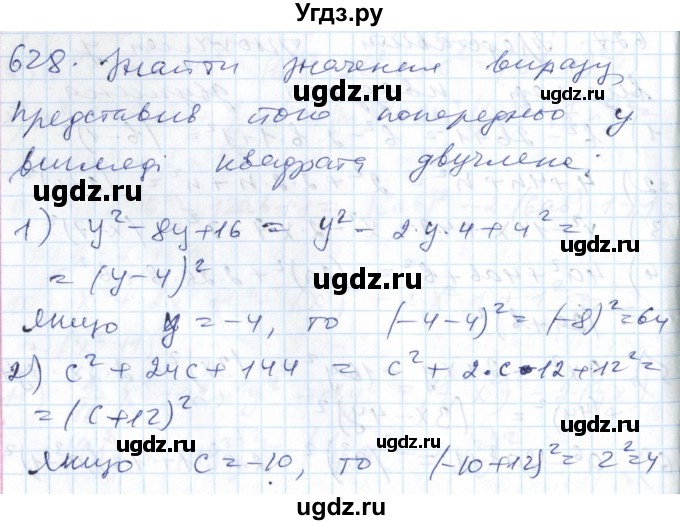 Угдз.ру
628. Знайти значення виразу,
представив його попередньо у
вигляді квадрата двучлена:
1) y² - 8y + 16 = y² - 2·y·4 + 4² =
= (y - 4)²
Якщо y = -4, то (-4-4)² = (-8)² = 64
2) c² + 24c + 144 = c² + 2·c·12 + 12² =
= (c + 12)²
Якщо c = -10, то (-10+12)² = 2² = 4
ugdz.ru
ugdz.ru
ugdz.ru
ugdz.ru
ugdz.ru
ugdz.ru
ugdz.ru
ugdz.ru
ugdz.ru
ugdz.ru
ugdz.ru
ugdz.ru
ugdz.ru